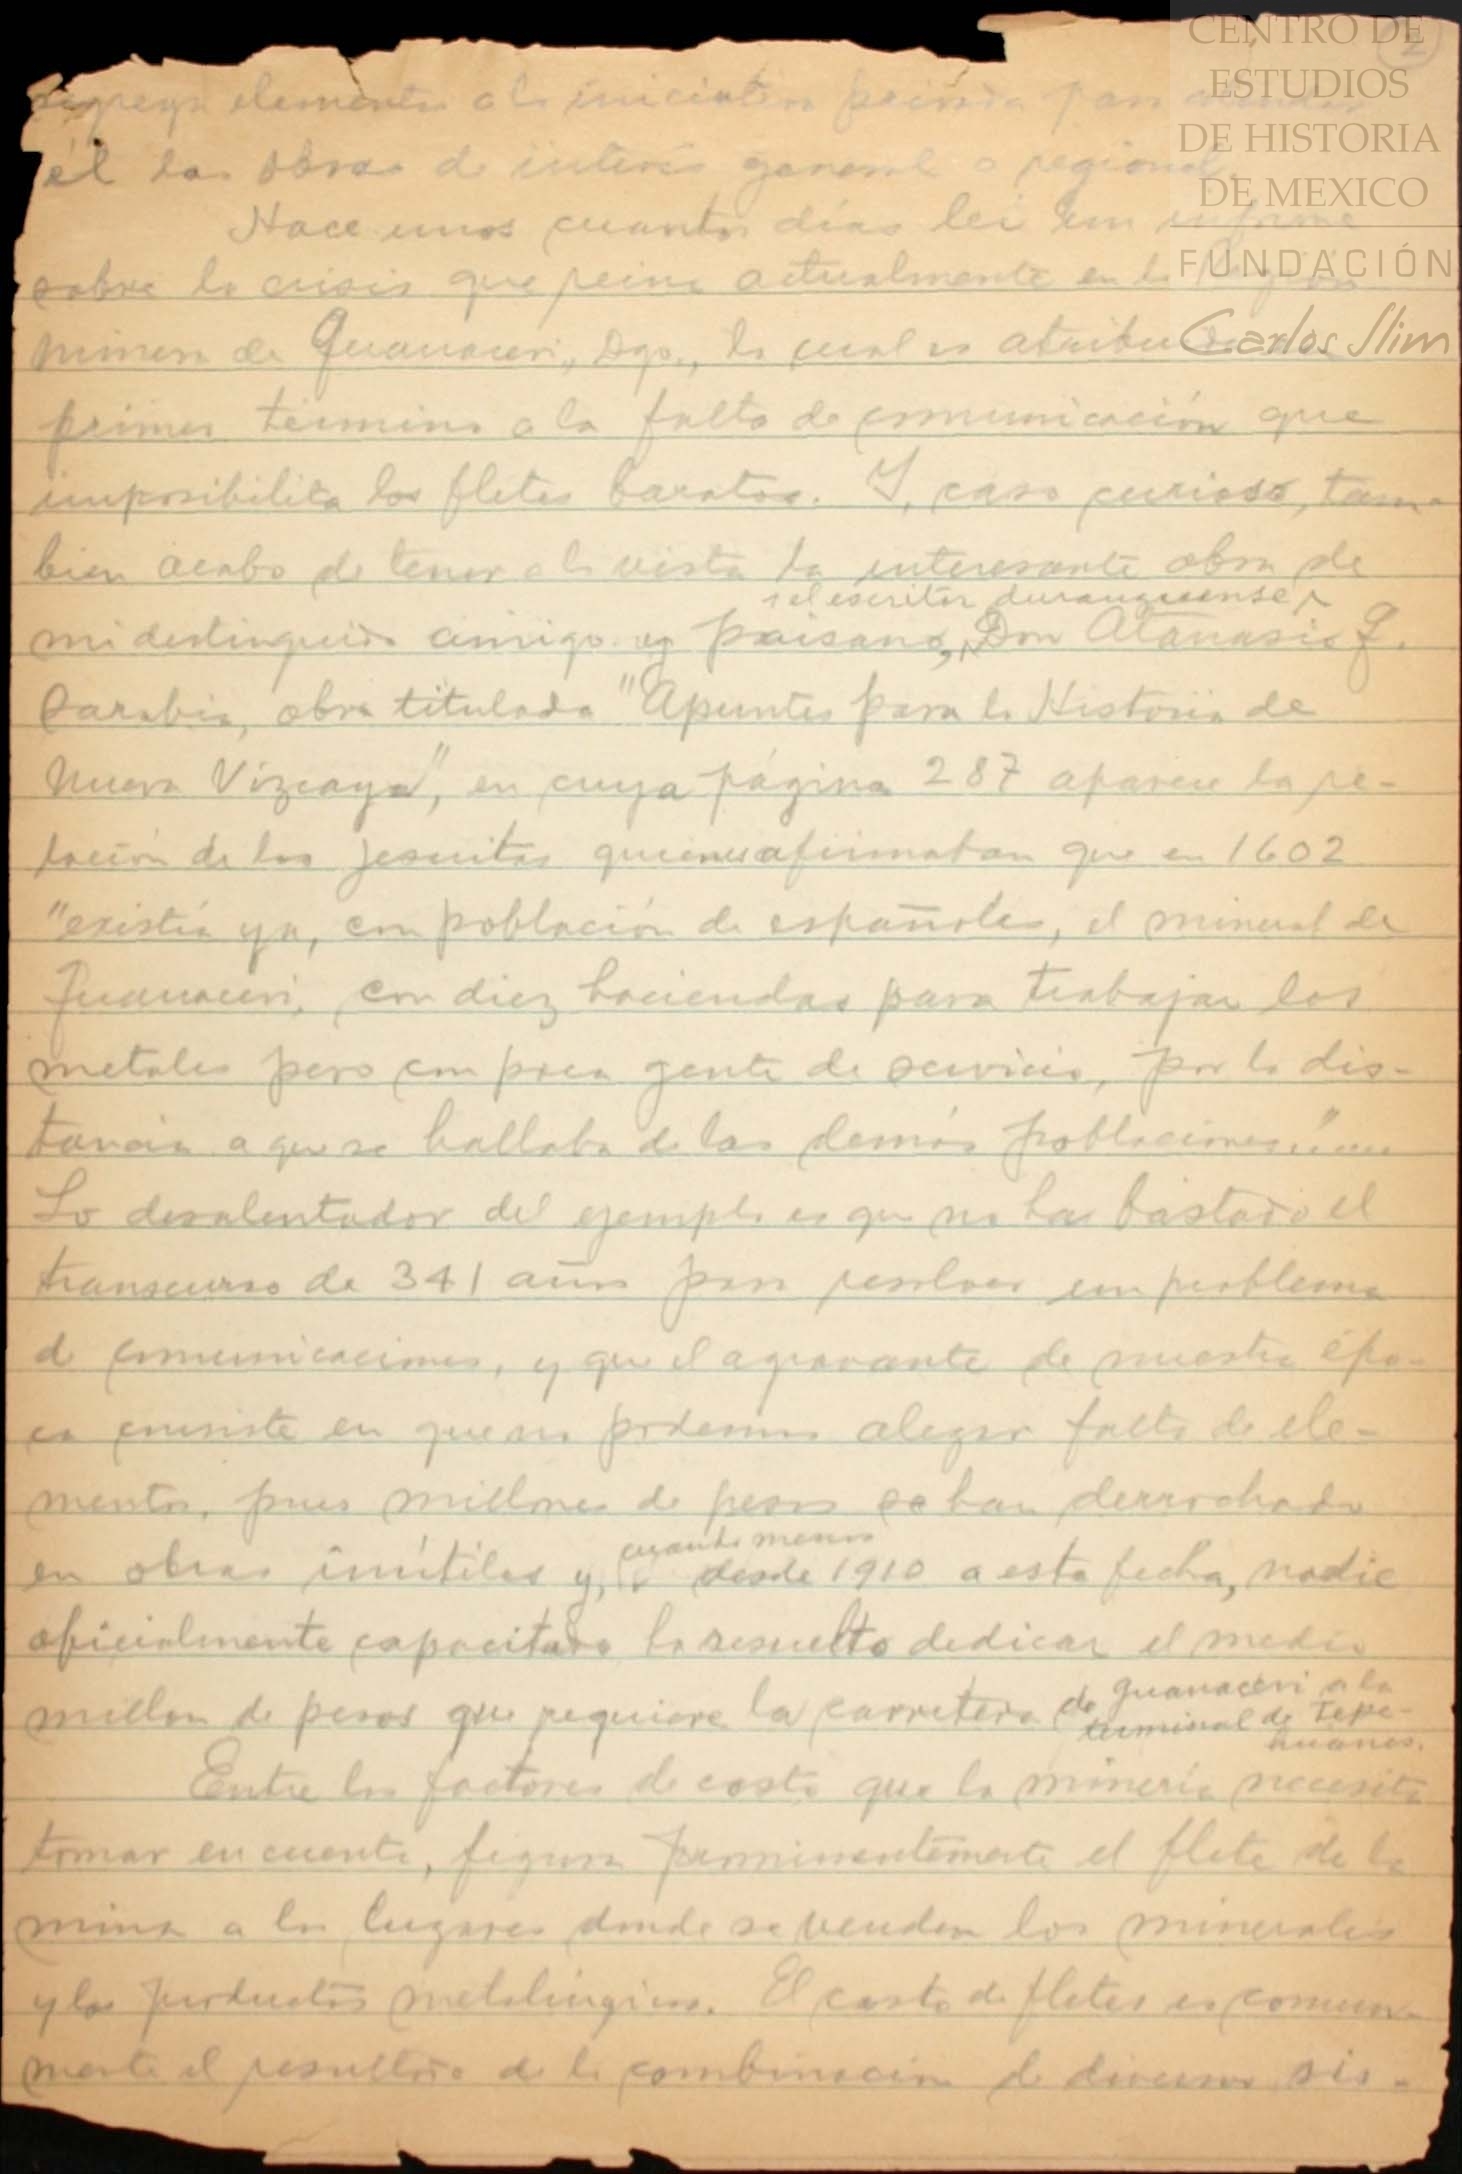 CENTRO DE
ESTUDIOS
DE HISTORIA
DE MEXICO
FUNDACIÓN
Carlos Slim
2
elementos a la iniciativa privada para
él las obras de interés general o regional.
Hace unos cuantos días leí un informe
sobre la crisis que reina actualmente en la Región
minera de Guanaceví, Dgo., la cual es atribuida en
primer término a la falta de comunicación que
imposibilita los fletes baratos. Y, caso curioso, tam-
bien acabo de tener a la vista la interesante obra de
el escritor duranguense
mi distinguido amigo y paisano, Don Atanasio G.
Sarabia, obra titulada "Apuntes para la Historia de
Nueva Vizcaya", en cuya página 287 aparece la re-
lación de los jesuitas quienes afirmaban que en 1602
"existía ya, con población de españoles, el mineral de
Guanaceví, con diez haciendas para trabajar los
metales pero con poca gente de servicio, por la dis-
tancia a que se hallaba de las demás poblaciones..."...
Lo desalentador del ejemplo es que no ha bastado el
transcurso de 341 años para resolver un problema
de comunicaciones, y que el agravante de nuestra épo-
ca consiste en que no podemos alegar falta de ele-
mentos, pues millones de pesos se han derrochado
cuando menos
en obras inútiles y, desde 1910 a esta fecha, nadie
oficialmente capacitado ha resuelto dedicar el medio
millon de pesos que requiere la carretera de Guanaceví a la
terminal de Tepe-
huanes.
Entre los factores de costo que la minería necesita
tomar en cuenta, figura prominentemente el flete de la
mina a los lugares donde se venden los minerales
y los productos metalúrgicos. El costo de fletes es comun-
mente el resultado de la combinación de diversos sis-